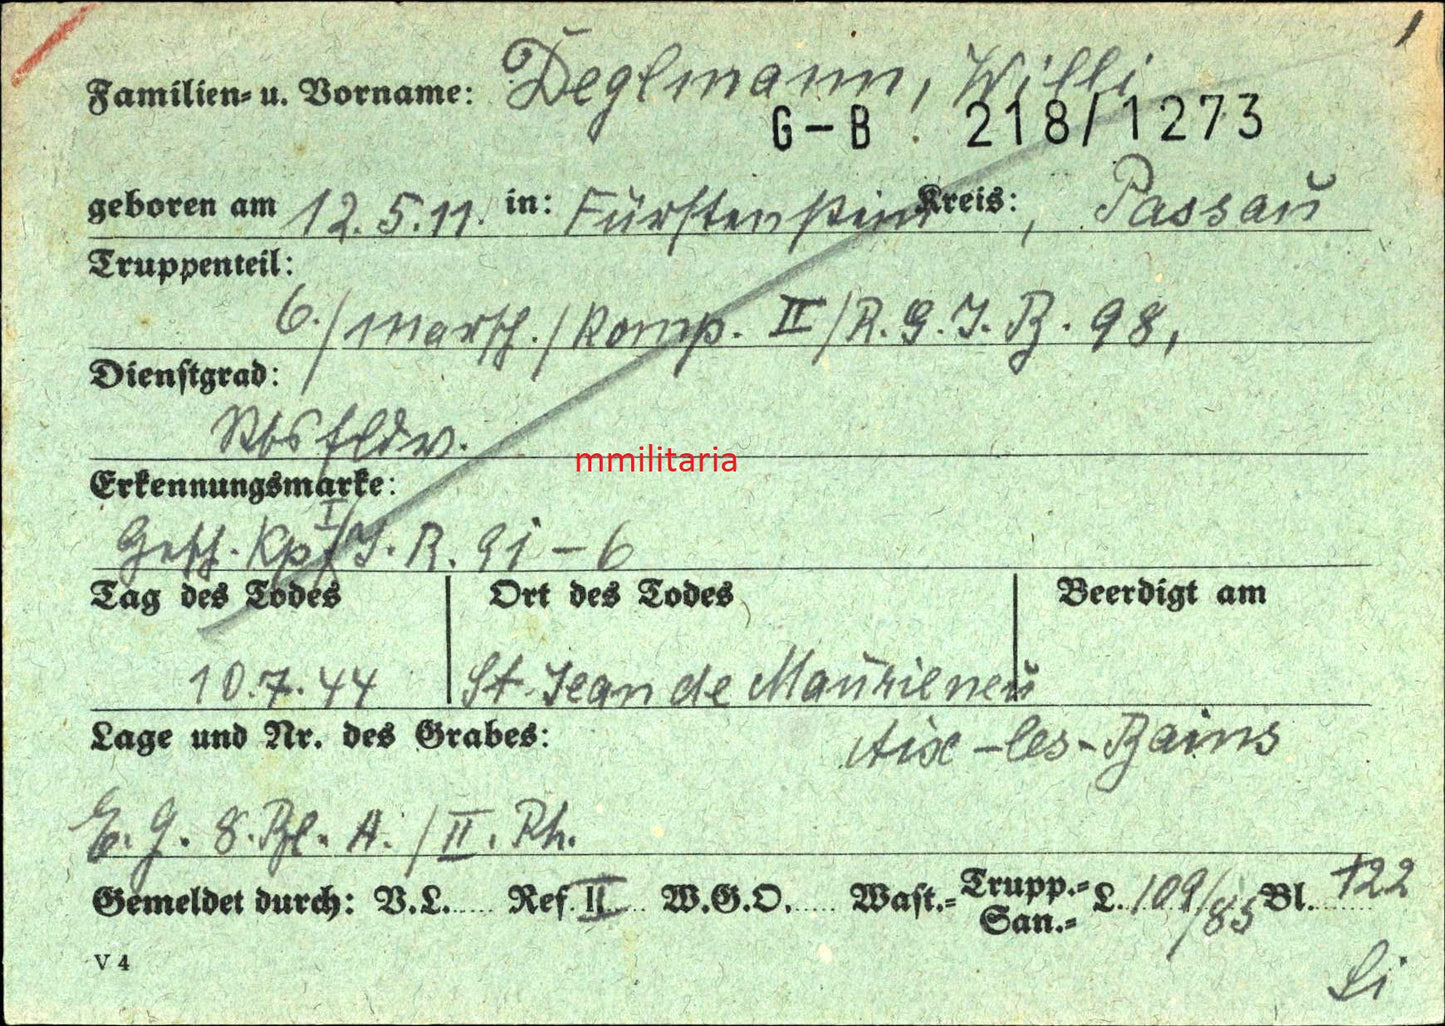 Familien- u. Vorname: Deglmann, Willi
G-B 218/1273
geboren am 12.5.11. in: Fürstenstein Kreis: , Passau
Truppenteil:
6./Marsch./Komp. II/R.G.J.B. 98,
Dienstgrad:
Obsfldw.
mmilitaria
Erkennungsmarke:
Gesch. Kp I/J.R. 91 – 6
Tag des Todes Ort des Todes Beerdigt am
10.7.44 St. Jean de
Lage und Nr. des Grabes: Aix-les-Bains
E. G. 8. Bl. A. / II. Rh.
Gemeldet durch: V.L. Ref II W.G.O. Wast.- Trupp.- San.- L. 109/85 Bl. 122
V 4
Li